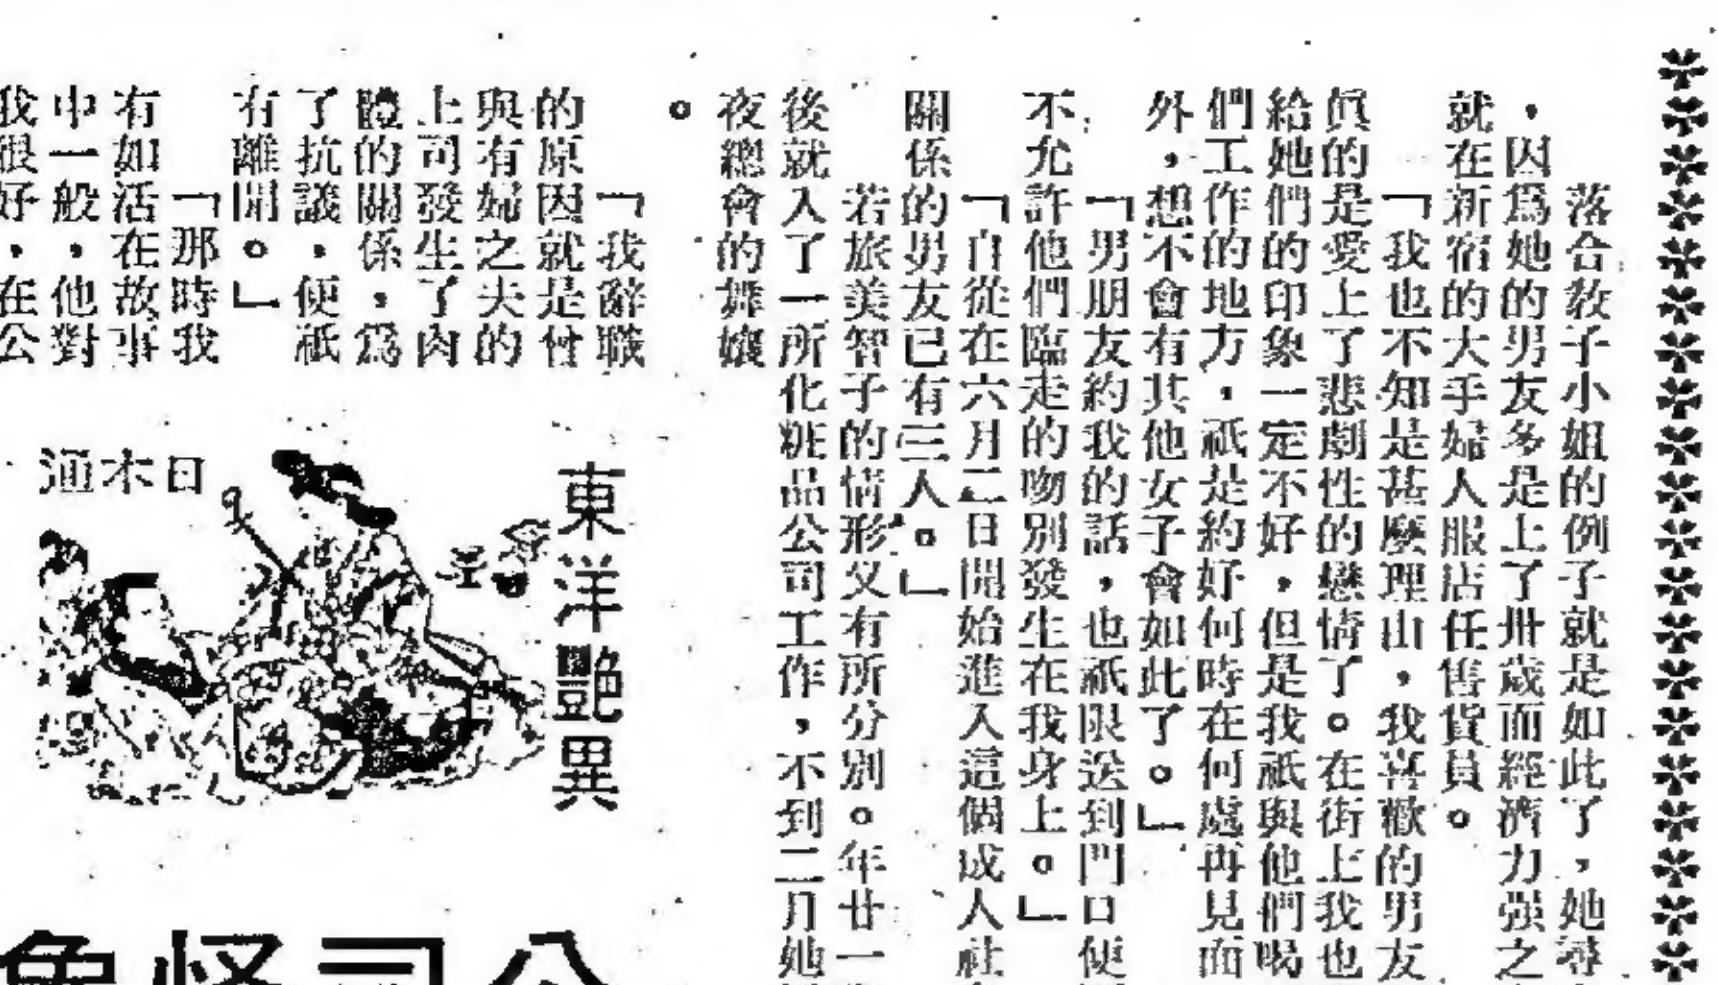 落合敎子小姐的例子就是如此了，她尋
，因爲她的男友多是上了卅歲而經濟力强之
就在新宿的大手婦人服店任售貨員。
「我也不知是甚麽理由，我喜歡的男友
眞的是愛上了悲劇性的戀情了。在街上我也
給她們的印象一定不好，但是我祇與他們喝
們工作的地方，祇是約好何時在何處再見面
外，想不會有其他女子會如此了。」
「男朋友約我的話，也祇限送到門口便
不允許他們臨走的吻別發生在我身上。」
「自從在六月二日開始進入這個成人社
關係的男友已有三人。」
若旅美智子的情形又有所分別。年廿一
後就入了一所化粧品公司工作，不到二月她
夜總會的舞孃
。
「我辭職
的原因就是曾
與有婦之夫的
上司發生了肉
體的關係，爲
了抗議，便祇
有離開。」
「那時我
有如活在故事
中一般，他對
我很好，在公
東洋艷異
日本通
公司怪